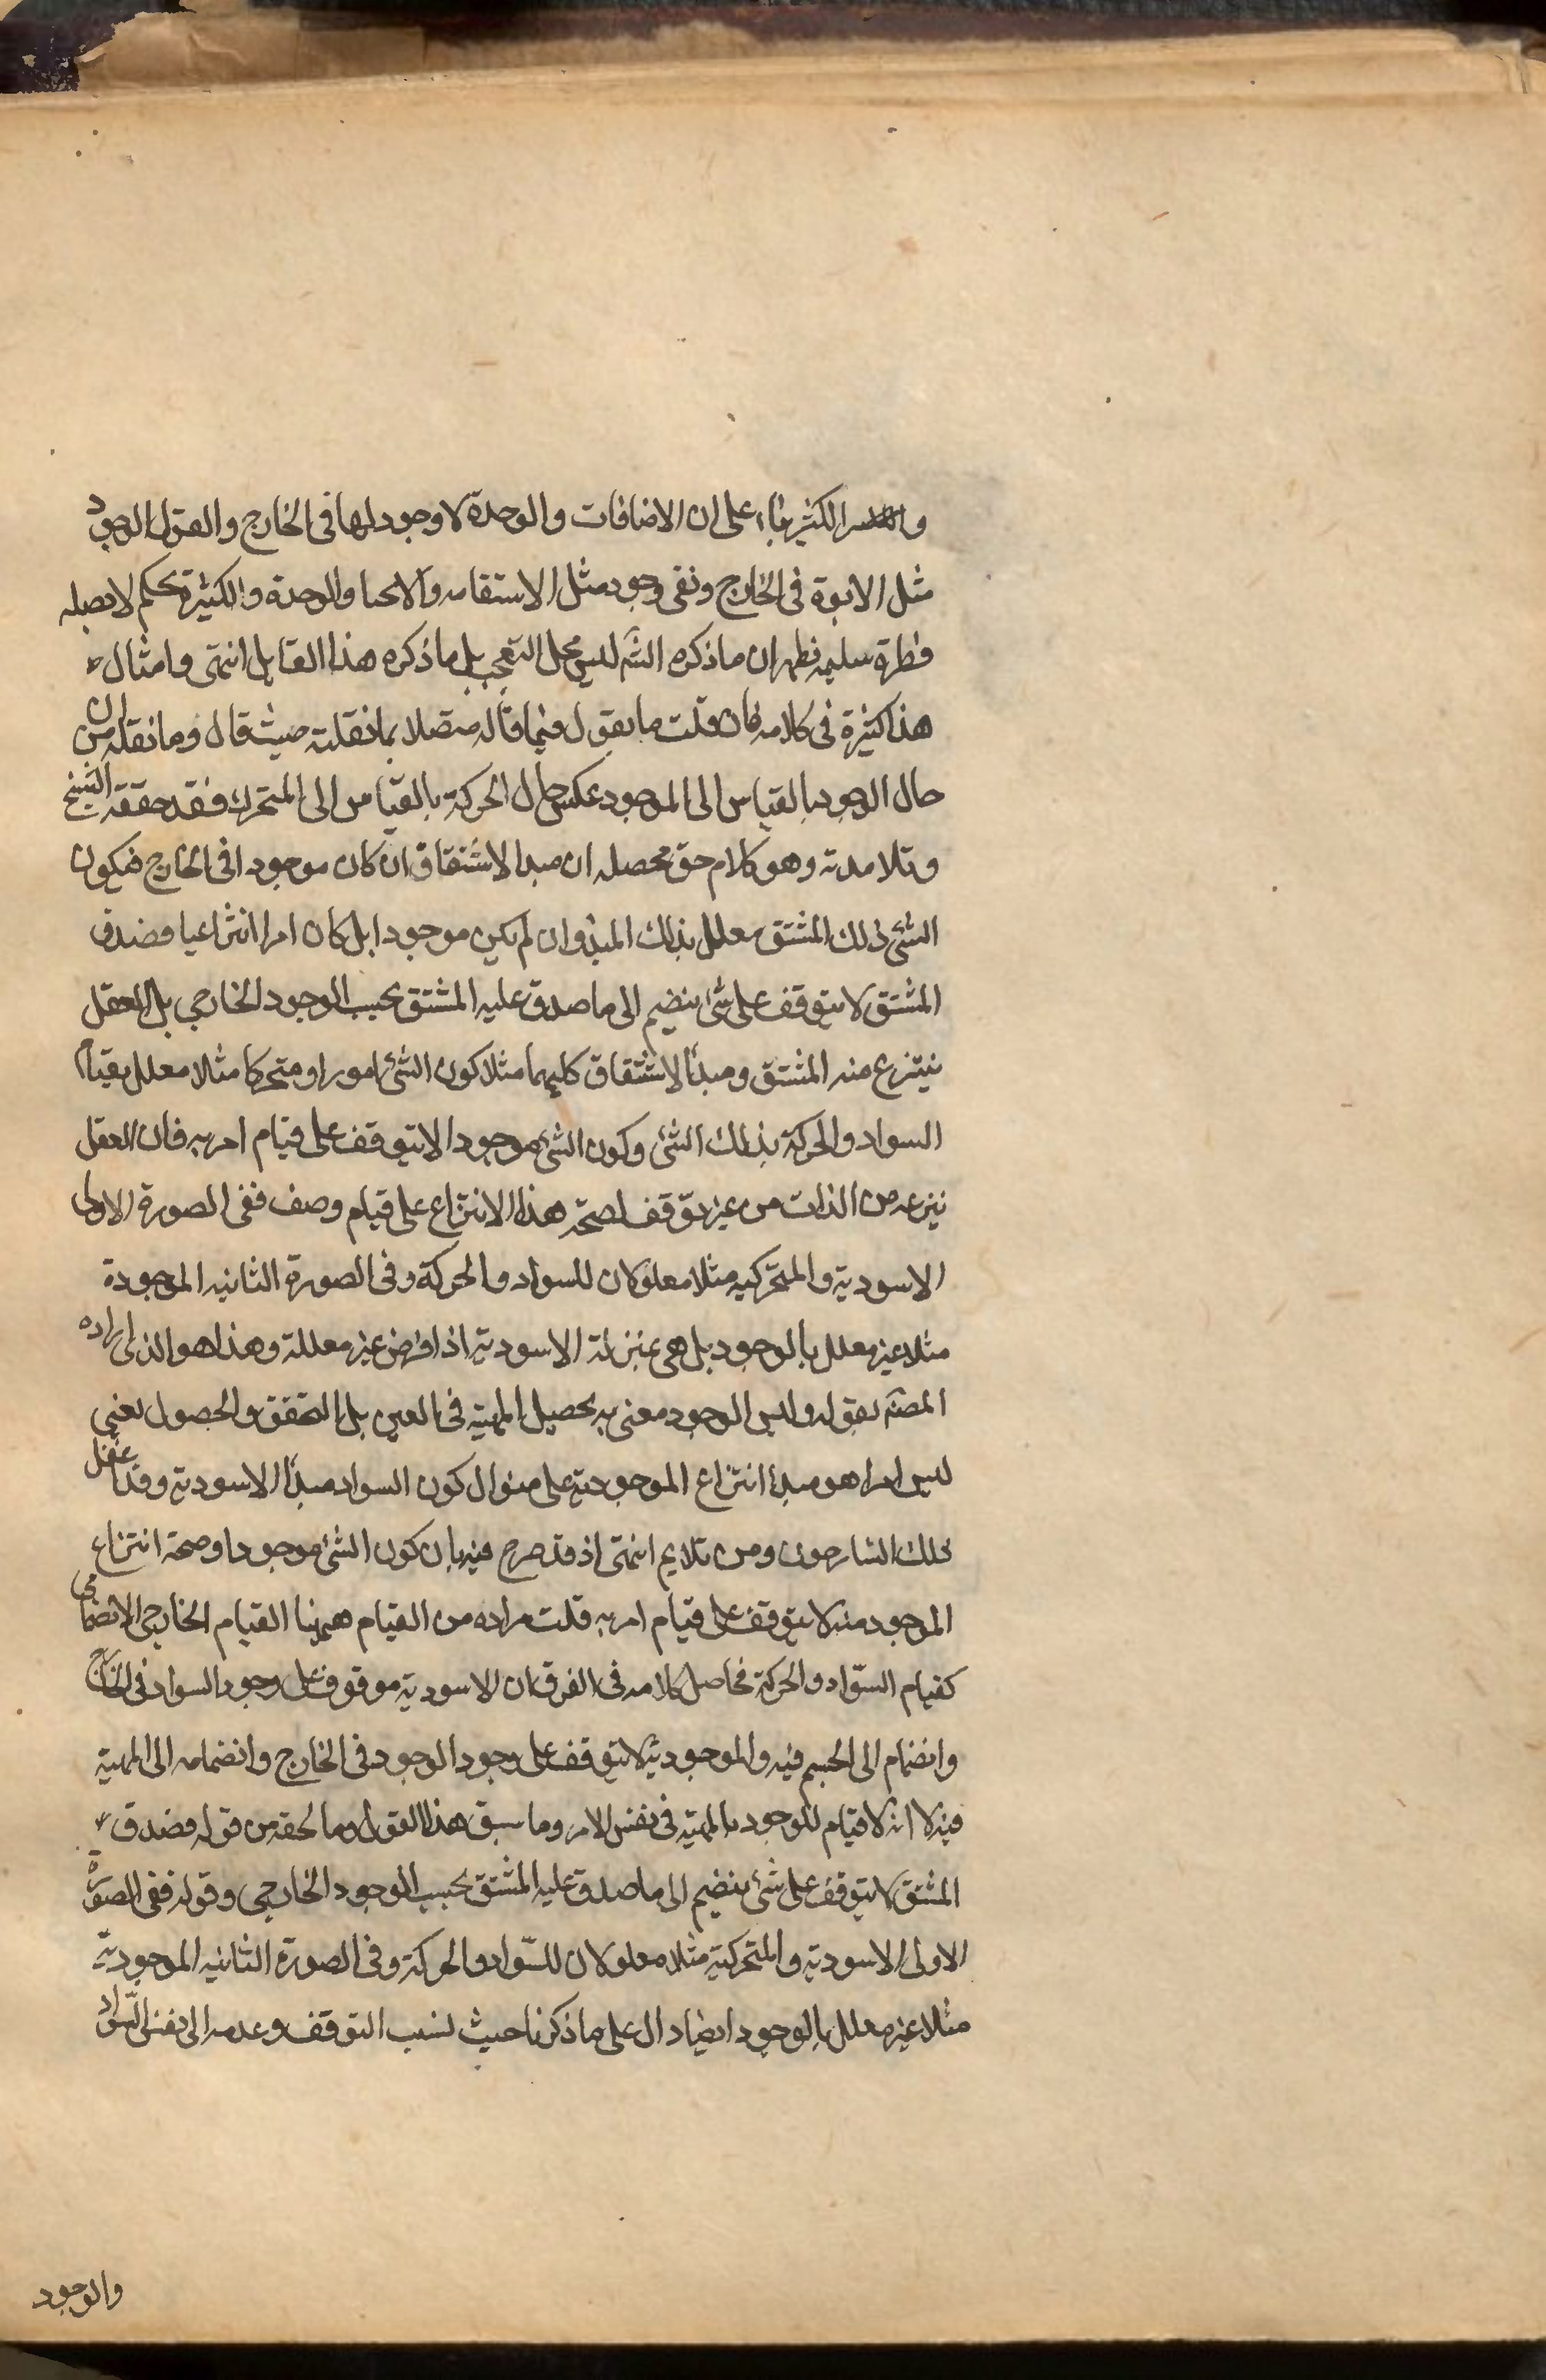 الكثير بناء على ان الاضافات والوحدة لا وجود لها فى الخارج والقول الوجود
مثل الابوة فى الخارج ونفى وجود مثل الاستقامه والانحنا والوحدة والكثيرة تحكم لا يصله
فطرة سليمه نظهر ان ما ذكره الشـ ليس محل التعجب بل ما ذكره هذا القايل انتهى وامثال
هذا كثيرة فى كلامه فان قلت ما يقول فيما قاله متصلا بما نقلته حيث قال وما نقله من ان
حال الوجود بالقياس الى الموجود عكس حال الحركة بالقياس الى المتحرك فقد حققه الشيخ
وتلامدته وهو كلام حق محصله ان مبدا الاشتقاق ان كان موجودا فى الخارج فيكون
الشئ ذلك المشتق معلل بذلك المبدا وان لم يكن موجودا بل كان امرا انتزاعيا فصدق
المشتق لا يتوقف على شئ ينضم الى ما صدق عليه المشتق بحسب الوجود الخارجى بل العقل
ينتزع منه المشتق ومبدأ الاشتقاق كليهما مثلا كون الشئ اسود او متحركا مثلا معلل بقيام
السواد والحركة بذلك الشئ وكون الشئ موجودا لا يتوقف على قيام امر به فان العقل
ينزعه من الذات من غير توقف لصحة هذا الانتزاع على قيام وصف ففى الصورة الاولى
الاسودية والمتحركيه مثلا معلولان للسواد والحركة وفى الصورة الثانيه الموجودة
مثلا غير معلل بالوجود بل هى بمنزلة الاسودية اذا فرض غير معللة وهذا هو الذى اراده
المصـ بقوله وليس الوجود معنى به تحصيل المهية فى العين بل التحقق والحصول يعنى
ليس امرا هو مبدأ انتزاع الموجودية على منوال كون السواد مبدأ الاسودية وقد غفل
ذلك الشارحون ومن تلاهم انتهى اذ قد صرح فيه بان كون الشئ موجودا وصحة انتزاع
الموجود منه لا يتوقف على قيام امر به قلت مراده من القيام هيهنا القيام الخارجى الانضمامى
كقيام السّواد والحركة فحاصل كلامه فى الفرق ان الاسودية موقوف على وجود السواد فى الخارج
وانضمام الى الجسم فيه والموجودية لا يتوقف على وجود الوجود فى الخارج وانضمامه الى المهية
فيه لا انه لا قيام للوجود بالمهية فى نفس الامر وما سبق هذا القول وما لحقه من قوله فصدق
المشتق لا يتوقف على شئ ينضم الى ما صدق عليه المشتق بحسب الوجود الخارجى وقوله ففى الصورة
الاولى الاسودية والمتحركية مثلا معلولان للسّواد والحركة وفى الصورة الثانيه الموجودية
مثلا غير معلل بالوجود ايضا دال على ما ذكرنا حيث نسب التوقف وعدمه الى نفس السّواد
والوجود